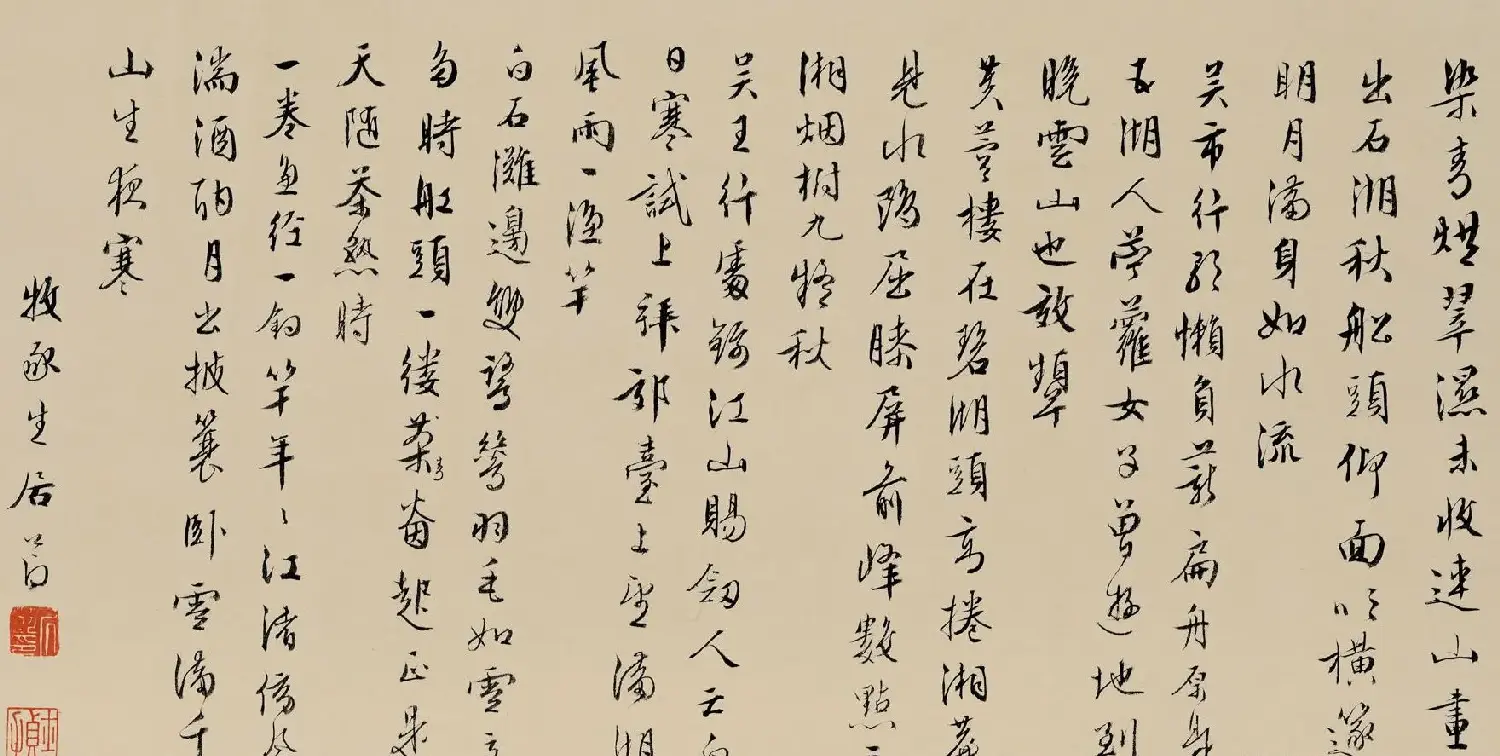 染青烘翠濕未收連山畫
出石湖秋船頭仰面吹橫篴
明月滿身如水流
吳市行歌懶負薪扁舟原是
五湖人苧蘿女子曾遊地到
晚雲山也效顰
黃篾樓在碧湖頭高捲湘簾
見水隝屈膝屏前峰數點
湘烟樹九疑秋
吳王行處鎊江山賜劔人亡白
日寒試上琴郎臺上望滿湖
風雨一漁竿
白石灘邊雙鷺鷥羽毛如雪
時舡頭一縷茶煙起正是
天隨茶熟時
一卷魚經一釣竿年〻江渚傍
濡酒酌月出披蓑臥雪滿千
山生夜寒
牧豕生居節